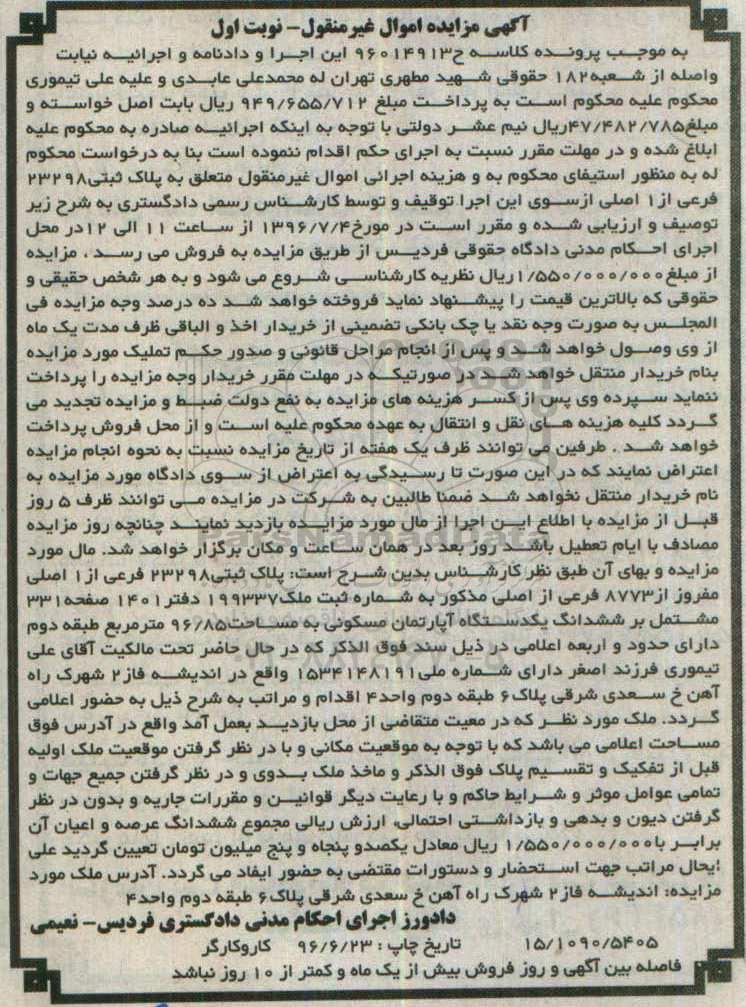 آگهی مزایده اموال غیرمنقول- نوبت اول
به موجب پرونده کلاسه ح۹۶۰۱۴۹۱۳ این اجرا و دادنامه و اجرائیه نیابت
واصله از شعبه۱۸۲ حقوقی شهید مطهری تهران له محمدعلی عابدی و علیه علی تیموری
محکوم علیه محکوم است به پرداخت مبلغ ۹۴۹/۶۵۵/۷۱۲ ریال بابت اصل خواسته و
مبلغ۴۷/۴۸۲/۷۸۵ریال نیم عشر دولتی با توجه به اینکه اجرائیه صادره به محکوم علیه
ابلاغ شده و در مهلت مقرر نسبت به اجرای حکم اقدام ننموده است بنا به درخواست محکوم
له به منظور استیفای محکوم به و هزینه اجرائی اموال غیرمنقول متعلق به پلاک ثبتی۲۳۲۹۸
فرعی از۱ اصلی ازسوی این اجرا توقیف و توسط کارشناس رسمی دادگستری به شرح زیر
توصیف و ارزیابی شده و مقرر است در مورخ۱۳۹۶/۷/۴ از ساعت ۱۱ الی ۱۲در محل
اجرای احکام مدنی دادگاه حقوقی فردیس از طریق مزایده به فروش می رسد ، مزایده
از مبلغ۱/۵۵۰/۰۰۰/۰۰۰ریال نظریه کارشناسی شروع می شود و به هر شخص حقیقی و
حقوقی که بالاترین قیمت را پیشنهاد نماید فروخته خواهد شد ده درصد وجه مزایده فی
المجلس به صورت وجه نقد یا چک بانکی تضمینی از خریدار اخذ و الباقی ظرف مدت یک ماه
از وی وصول خواهد شد و پس از انجام مراحل قانونی و صدور حکم تملیک مورد مزایده
بنام خریدار منتقل خواهد شد در صورتیکه در مهلت مقرر خریدار وجه مزایده را پرداخت
ننماید سپرده وی پس از کسر هزینه های مزایده به نفع دولت ضبط و مزایده تجدید می
گردد کلیه هزینه های نقل و انتقال به عهده محکوم علیه است و از محل فروش پرداخت
خواهد شد . طرفین می توانند ظرف یک هفته از تاریخ مزایده نسبت به نحوه انجام مزایده
اعتراض نمایند که در این صورت تا رسیدگی به اعتراض از سوی دادگاه مورد مزایده به
نام خریدار منتقل نخواهد شد ضمنا طالبین به شرکت در مزایده می توانند ظرف ۵ روز
قبل از مزایده با اطلاع این اجرا از مال مورد مزایده بازدید نمایند چنانچه روز مزایده
مصادف با ایام تعطیل باشد روز بعد در همان ساعت و مکان برگزار خواهد شد. مال مورد
مزایده و بهای آن طبق نظر کارشناس بدین شرح است: پلاک ثبتی۲۳۲۹۸ فرعی از۱ اصلی
مفروز از۸۷۷۳ فرعی از اصلی مذکور به شماره ثبت ملک۱۹۹۳۳۷ دفتر۱۴۰۱ صفحه۳۳۱
مشتمل بر ششدانگ یکدستگاه آپارتمان مسکونی به مساحت۹۶/۸۵ مترمربع طبقه دوم
دارای حدود و اربعه اعلامی در ذیل سند فوق الذکر که در حال حاضر تحت مالکیت آقای علی
تیموری فرزند اصغر دارای شماره ملی۱۵۳۴۱۴۸۱۹۱ واقع در اندیشه فاز۲ شهرک راه
آهن خ سعدی شرقی پلاک۶ طبقه دوم واحد۴ اقدام و مراتب به شرح ذیل به حضور اعلامی
گردد. ملک مورد نظر که در معیت متقاضی از محل بازدید بعمل آمد واقع در آدرس فوق
مساحت اعلامی می باشد که با توجه به موقعیت مکانی و با در نظر گرفتن موقعیت ملک اولیه
قبل از تفکیک و تقسیم پلاک فوق الذکر و ماخذ ملک بدوی و در نظر گرفتن جمیع جهات و
تمامی عوامل موثر و شرایط حاکم و با رعایت دیگر قوانین و مقررات جاریه و بدون در نظر
گرفتن دیون و بدهی و بازداشتی احتمالی، ارزش ریالی مجموع ششدانگ عرصه و اعیان آن
برابر با۱/۵۵۰/۰۰۰/۰۰۰ ریال معادل یکصدو پنجاه و پنج میلیون تومان تعیین گردید علی
ایحال مراتب جهت استحضار و دستورات مقتضی به حضور ایفاد می گردد. آدرس ملک مورد
مزایده: اندیشه فاز۲ شهرک راه آهن خ سعدی شرقی پلاک۶ طبقه دوم واحد۴
دادورز اجرای احکام مدنی دادگستری فردیس- نعیمی
۱۵/۱۰۹۰/۵۴۰۵ تاریخ چاپ : ۹۶/۶/۲۳ کاروکارگر
فاصله بین آگهی و روز فروش بیش از یک ماه و کمتر از ۱۰ روز نباشد
ParsNamadData